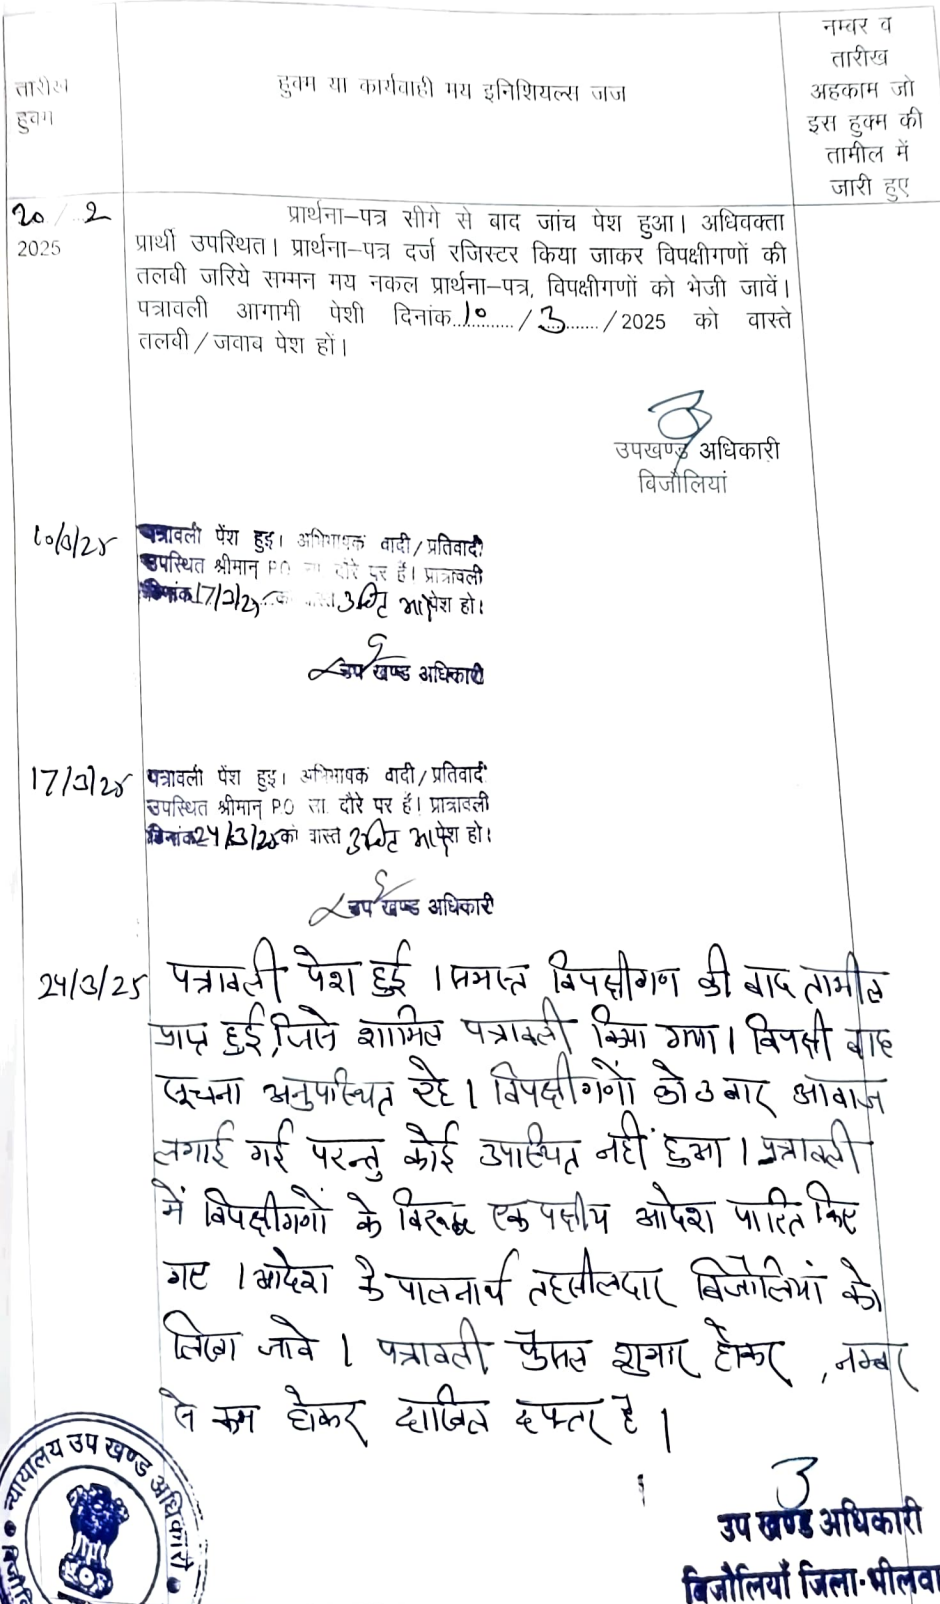 तारीख
हुक्म
हुक्म या कार्यवाही मय इनिशियल्स जज
नम्बर व
तारीख
अहकाम जो
इस हुक्म की
तामील में
जारी हुए
20 / 2
2025
प्रार्थना-पत्र सीगे से बाद जांच पेश हुआ। अधिवक्ता
प्रार्थी उपस्थित। प्रार्थना-पत्र दर्ज रजिस्टर किया जाकर विपक्षीगणों की
तलवी जरिये सम्मन मय नकल प्रार्थना-पत्र, विपक्षीगणों को भेजी जावें।
पत्रावली आगामी पेशी दिनांक..10../..3../2025 को वास्ते
तलवी/जवाव पेश हों।
उपखण्ड अधिकारी
विजौलियां
10/3/25
पत्रावली पेंश हुइ। अभिभाषक वादी/प्रतिवादी
उपस्थित श्रीमान P.O सा. दौरे पर हैं। प्रात्रावली
दिनांक 17/3/25 पेश हो।
उप खण्ड अधिकारी
17/3/25
पत्रावली पेंश हुइ। अभिभाषक वादी/प्रतिवादी
उपस्थित श्रीमान P.O सा. दौरे पर हैं। प्रात्रावली
दिनांक 24/3/25 को वास्ते पेश हो।
उप खण्ड अधिकारी
24/3/25
पत्रावली पेश हुई । समस्त विपक्षीगण की बाद तामील
प्राप्त हुई, जिसे शामिल पत्रावली किया गया। विपक्षी बाद
सूचना अनुपस्थित रहे । विपक्षीगणों को 3 बार आवाज
लगाई गई परन्तु कोई उपस्थित नहीं हुआ । पत्रावली
में विपक्षीगणों के विरूद्ध एक पक्षीय आदेश पारित किए
गए । आदेश के पालनार्थ तहसीलदार बिजौलियां को
लिखा जावे । पत्रावली फैसल शुमार होकर , नम्बर
से कम होकर दाखिल दफ्तर हो ।
उप खण्ड अधिकारी
बिजौलियाँ जिला-भीलवा
न्यायालय उप खण्ड अधिकारी